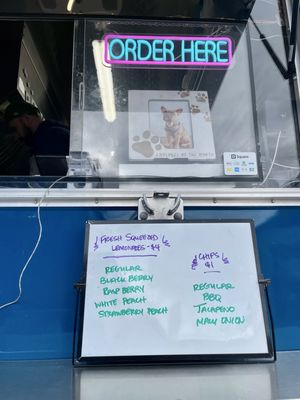 ORDER HERE
Square
FRESH SQUEEZED
LEMONADES - $4
REGULAR
BLACKBERRY
RASPBERRY
WHITE PEACH
STRAWBERRY PEACH
CHIPS
$1
REGULAR
BBQ
JALAPENO
MAUI ONION